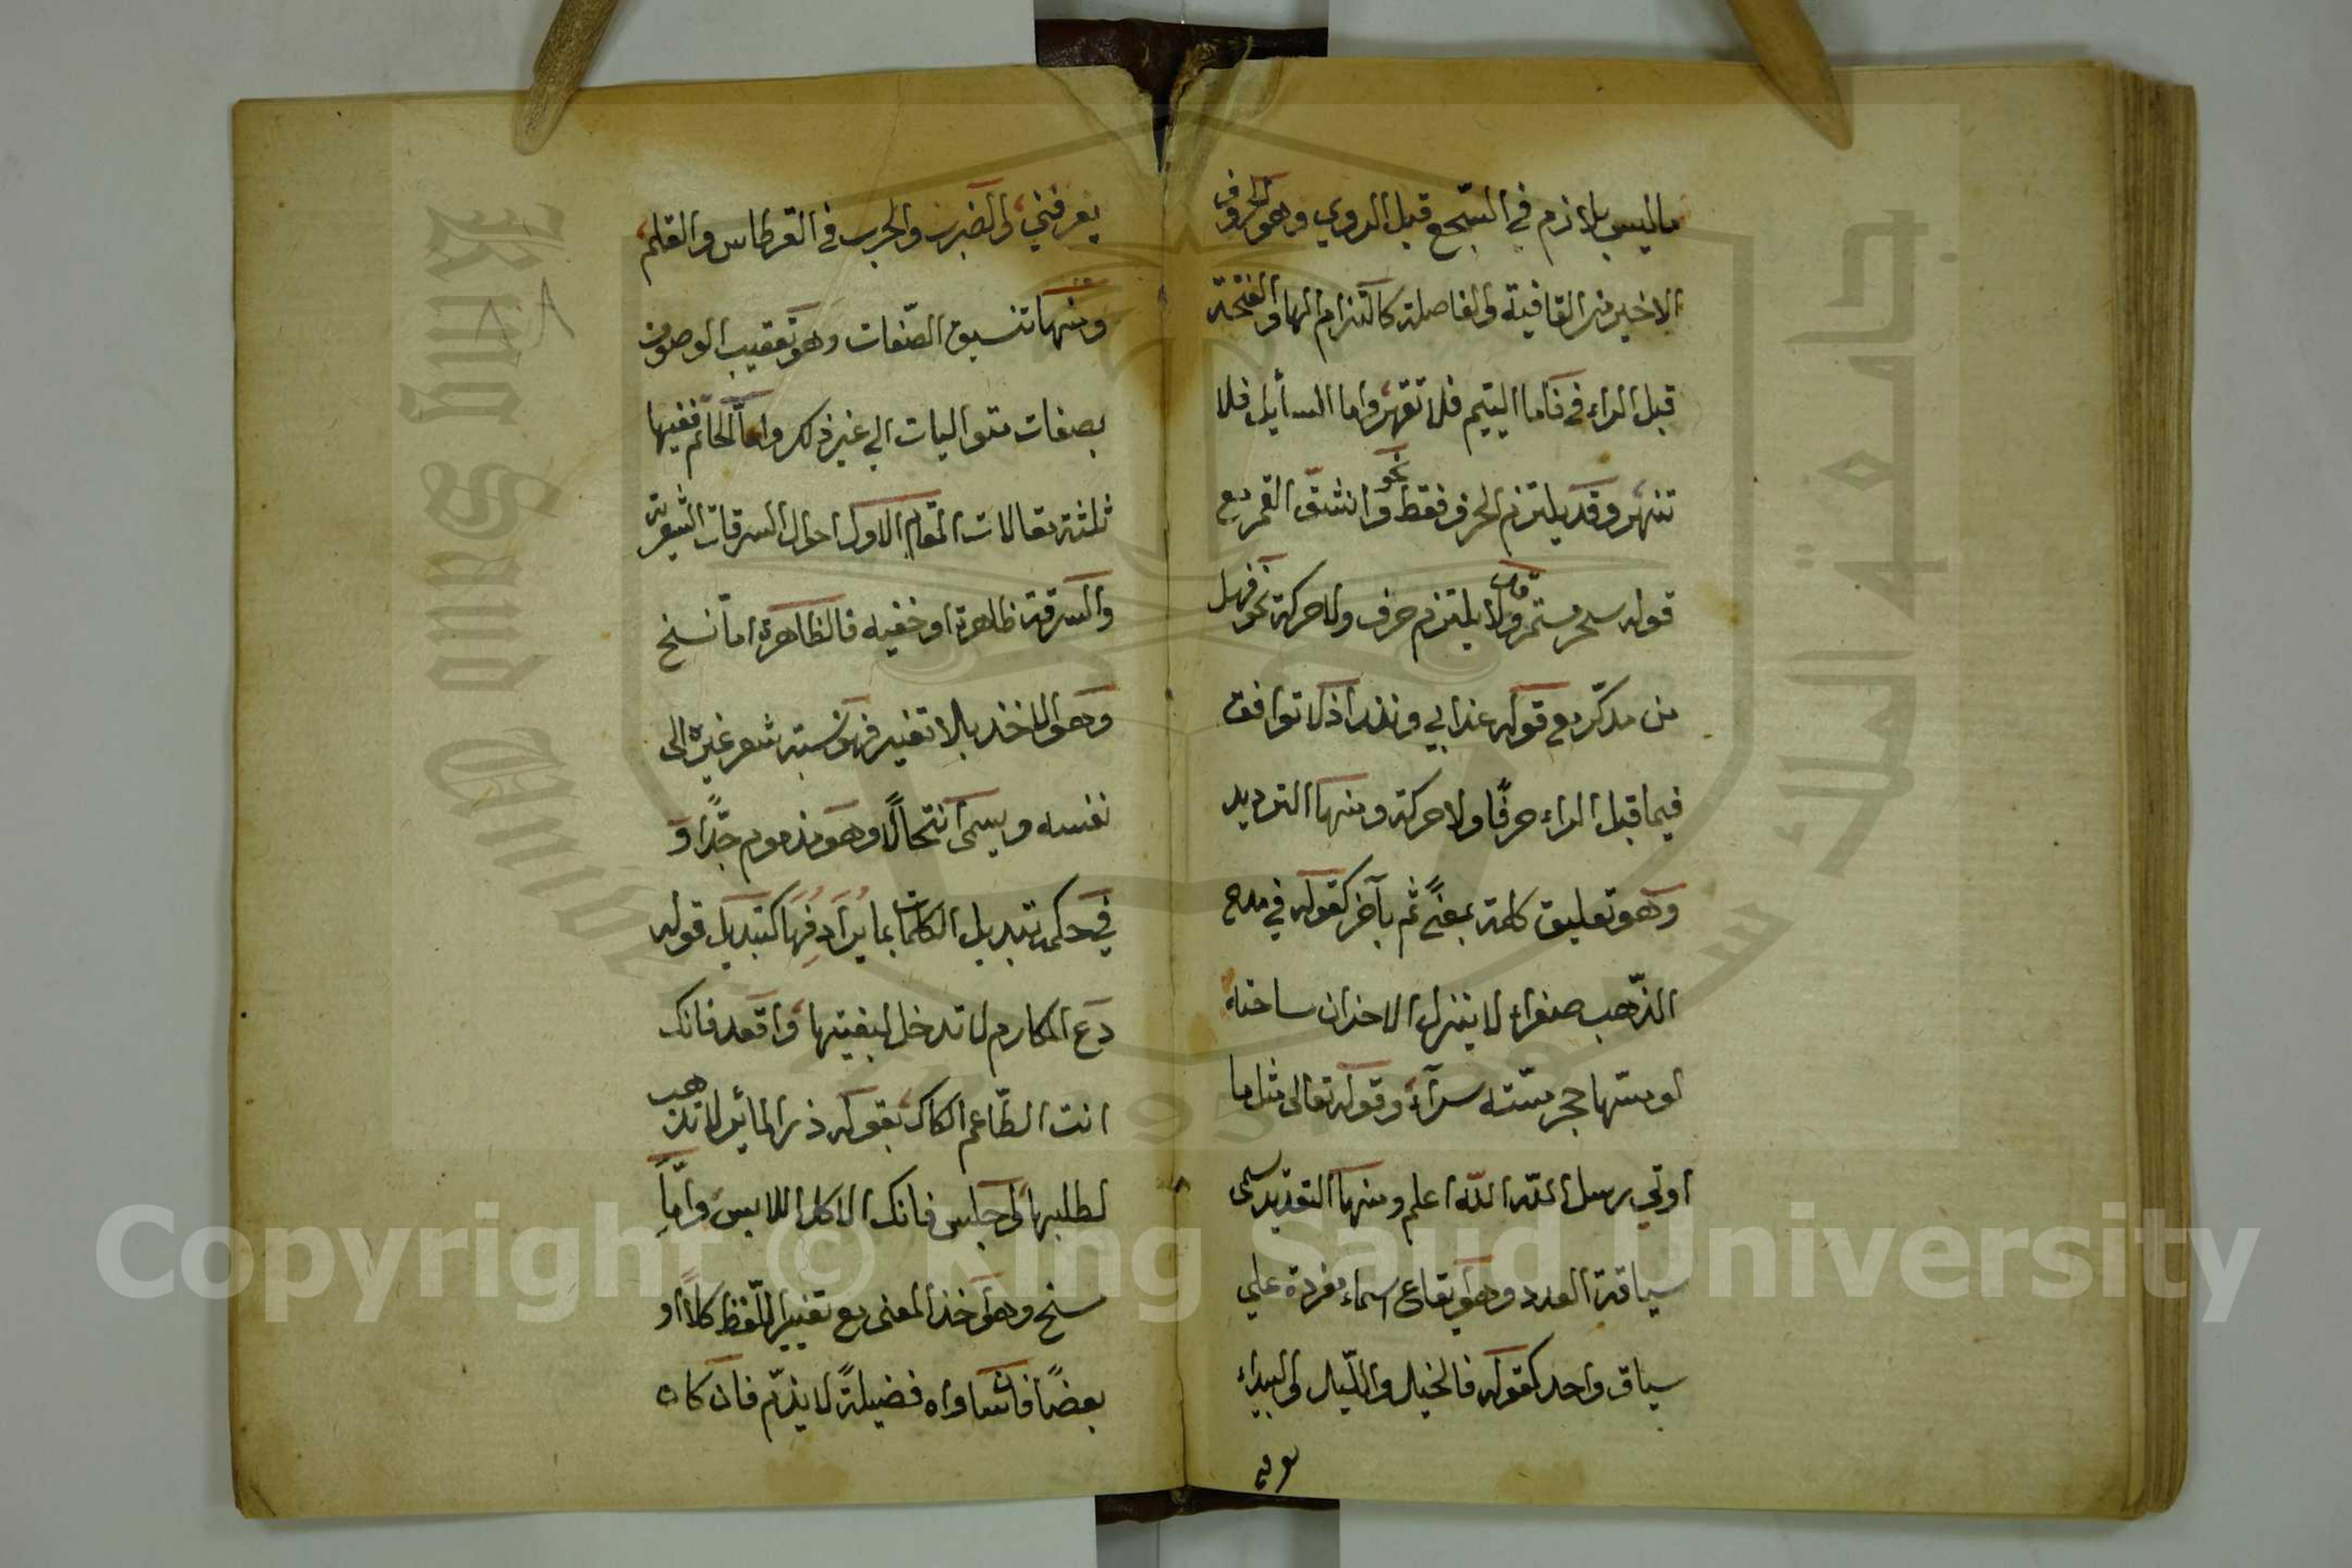 ماليس بلازم في السّجع قبل الروي وهو الحروف
الاخير من القافية والفاصلة كالتزام الهاء والفتحة
قبل الراء في فاما اليتيم فلا تقهر واما السأيل فلا
تنهر وقد يلتزم الحرف فقط نحو وانشقّ القمر مع
قوله سحر مستمر ولا يلتزم حرف ولا حركة نحو فهل
من مدكّر مع قوله عذابي ونذر اذ لا توافق
فيما قبل الراء حرفًا ولا حركة ومنها الترديد
وهو تعليق كلمة بمعنًى ثم بآخر كقوله في مدح
الذّهب صفراء لا ينزل الاحزان ساحته
لو مسّها حجر مسّته سرآء وقوله تعالى مثل ما
اوتي رسل اللّه اللّه اعلم ومنها التعديد سمى
سياقة العدد وهو ايقاع اسماء مفردة علي
سياق واحد كقوله فالخيل والليل والبيداء
يعرفني والضرب والحرب في القرطاس والقلم
ومنها تنسيق الصّفات وهو تعقيب الموصوف
بصفات متواليات الي غير ذلك واما الخاتم ففيها
ثلثة مقالات المقام الاول احوال السرقات الشعرية
والسرقة ظاهرة او خفيه فالظاهرة امّا نسخ
وهو الاخذ بلا تغيير فهو نسبة شعر غيره الى
نفسه ويسمى انتحالًا وهو مذموم جدًّا و
في حكمه تبديل الكلمات بما يُرادِفُها كتبديل قوله
دع المكارم لا تدخل لبغيتها واقعد فانك
انت الطّاعم الكاسي بقوله ذر المآثر لا تذهب
لطلبها واجلس فانك الاكل اللابس وامّا
سنخ وهو اخذ المعنى مع تغيير اللّفظ كلًا او
بعضًا فان ساواه فضيلةً لا يذمّ فان كان
Copyright © King Saud University
King Saud University
جامعة الملك سعود
1957